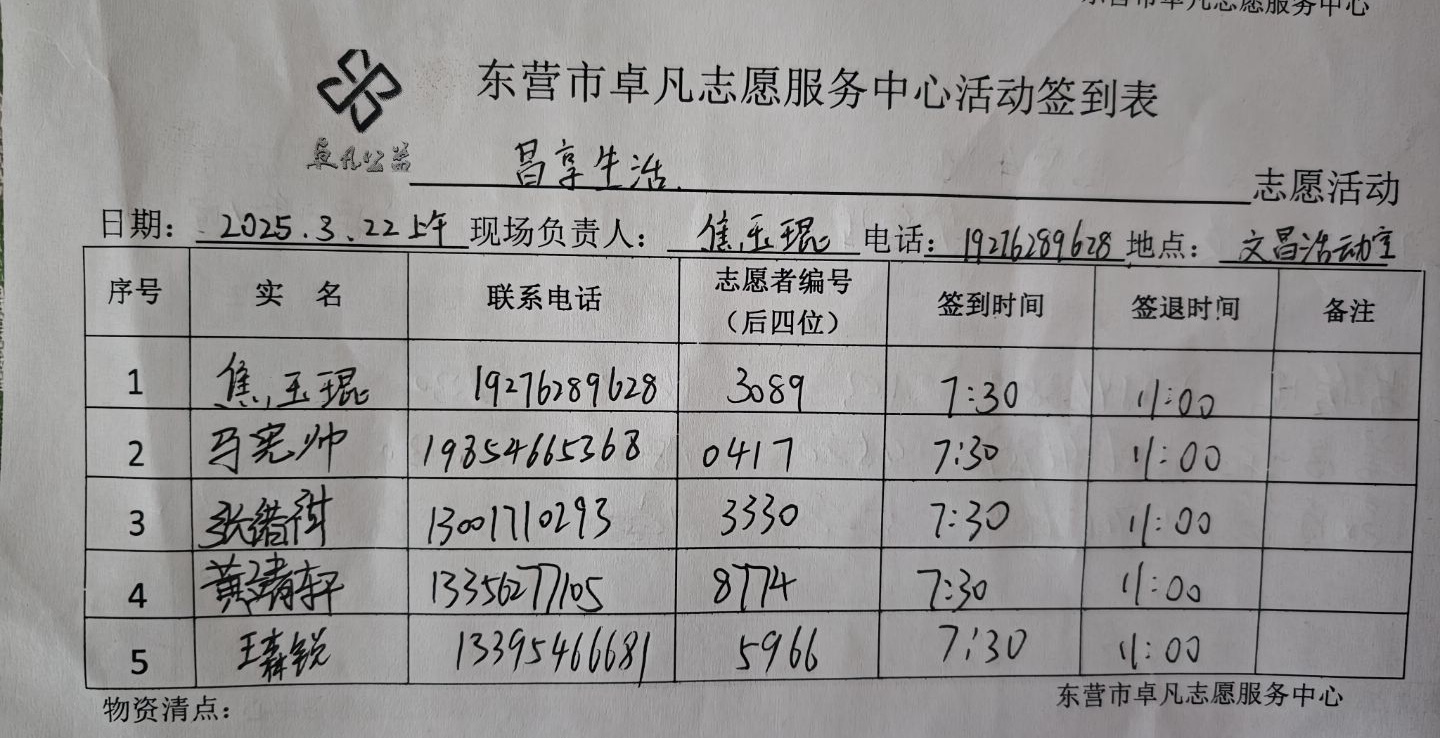 东营市卓凡志愿服务中心
东营市卓凡志愿服务中心活动签到表
卓凡公益
昌享生活 志愿活动
日期：2025.3.22上午 现场负责人：焦玉琨 电话：19276289628 地点：文昌活动室
序号 实 名 联系电话 志愿者编号（后四位） 签到时间 签退时间 备注
1 焦玉琨 19276289628 3089 7:30 11:00
2 马宪帅 19854665368 0417 7:30 11:00
3 张绪 13001710293 3330 7:30 11:00
4 黄靖轩 13356277105 8774 7:30 11:00
5 王森锐 13395466681 5966 7:30 11:00
物资清点： 东营市卓凡志愿服务中心